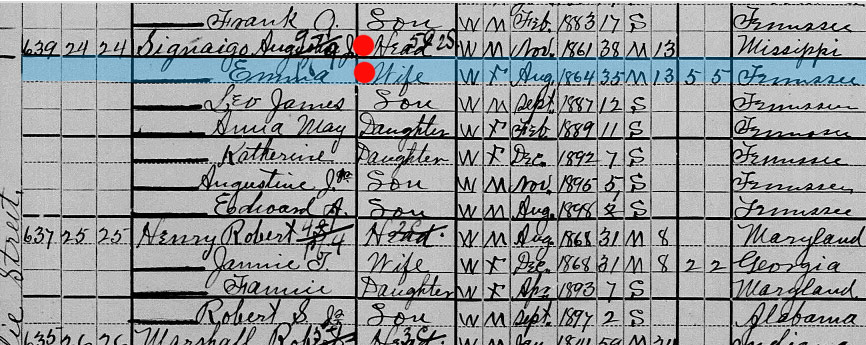 Frank J. Son W M Feb. 1883 17 S Tennessee
639 24 24 Signaigo Augustine J. Head W M Nov. 1861 38 M 13 Missippi
Emma Wife W F Aug 1864 35 M 13 5 5 Tennessee
Leo James Son W M Sept. 1887 12 S Tennessee
Anna May Daughter W F Feb 1889 11 S Tennessee
Katherine Daughter W F Dec. 1892 7 S Tennessee
Augustine Jr Son W M Nov. 1895 5 S Tennessee
Edward A. Son W M Aug. 1898 S Tennessee
637 25 25 Henry Robert Head W M Aug 1868 31 M 8 Maryland
Jannie T. Wife W F Dec. 1868 31 M 8 2 2 Georgia
Fannie Daughter W F Apr 1893 7 S Maryland
Robert S. Jr Son W M Sept. 1897 2 S Alabama
635 26 26 Marshall W M
Street